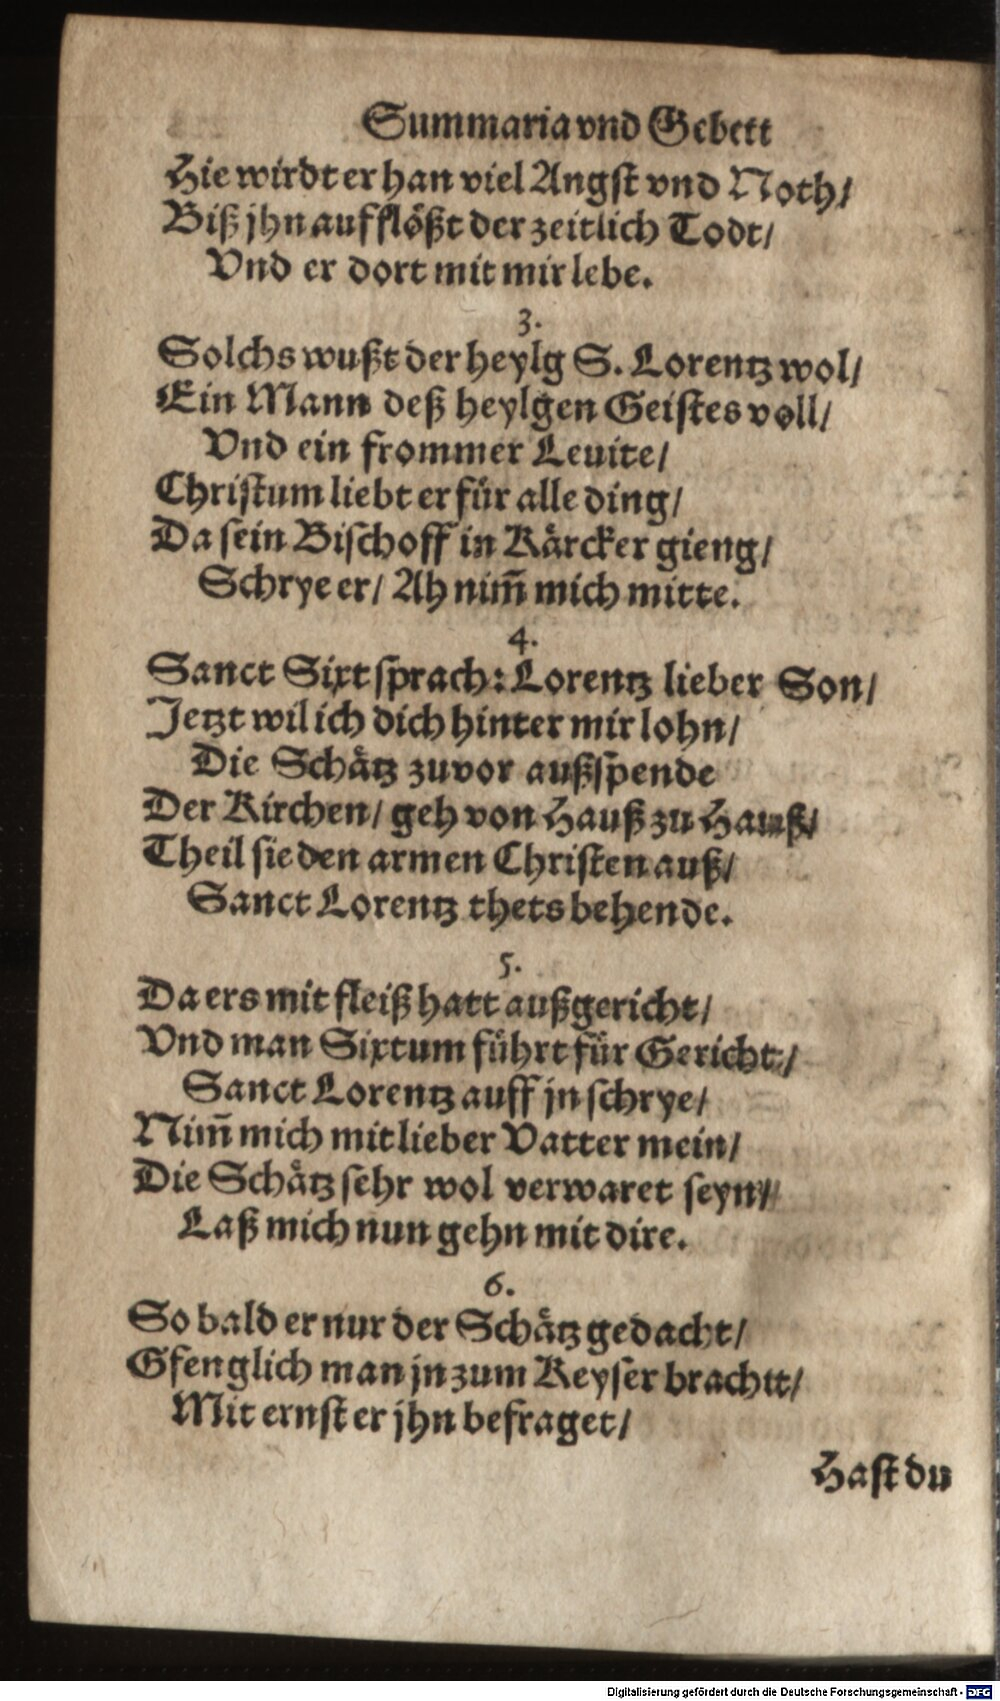 Summaria vnd Gebett
Hie wirdt er han viel Angst vnd Noth/
Biß jhn aufflößt der zeitlich Todt/
Vnd er dort mit mir lebe.
3.
Solchs wußt der heylg S. Lorentz wol/
Ein Mann deß heylgen Geistes voll/
Vnd ein frommer Leuite/
Christum liebt er für alle ding/
Da sein Bischoff in Kärcker gieng/
Schrye er/ Ah nim̃ mich mitte.
4.
Sanct Sixt sprach: Lorentz lieber Son/
Jetzt wil ich dich hinter mir lohn/
Die Schätz zuvor außspende
Der Kirchen/ geh von Hauß zu Hauß/
Theil sie den armen Christen auß/
Sanct Lorentz thets behende.
5.
Da ers mit fleiß hatt außgericht/
Vnd man Sixtum führt für Gericht/
Sanct Lorentz auff jn schrye/
Nim̃ mich mit lieber Vatter mein/
Die Schätz sehr wol verwaret seyn/
Laß mich nun gehn mit dire.
6.
So bald er nur der Schätz gedacht/
Gfenglich man jn zum Keyser brachtt/
Mit ernst er jhn befraget/
Hast du
Digitalisierung gefördert durch die Deutsche Forschungsgemeinschaft - DFG